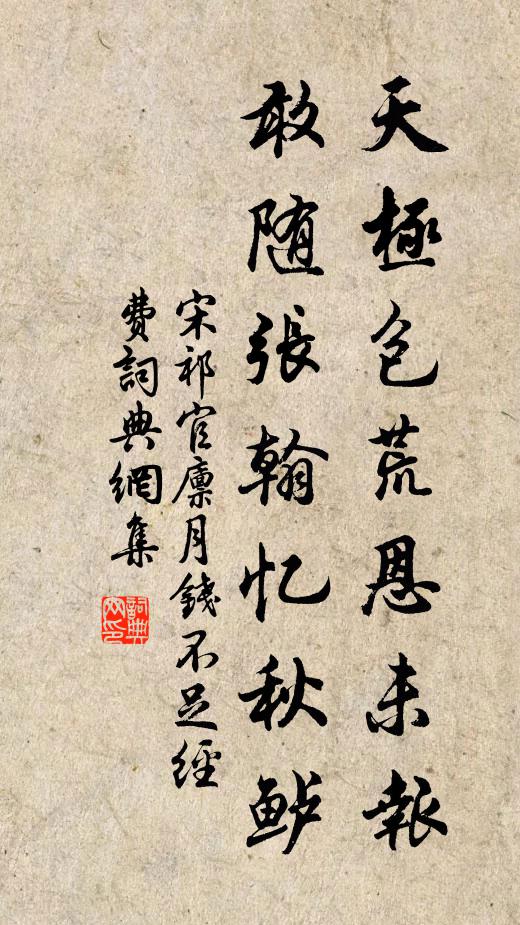 天極包荒恩未報
敢随張翰忆秋鲈
宋祁官廪月錢不足經
費詞典網集
詞典網印